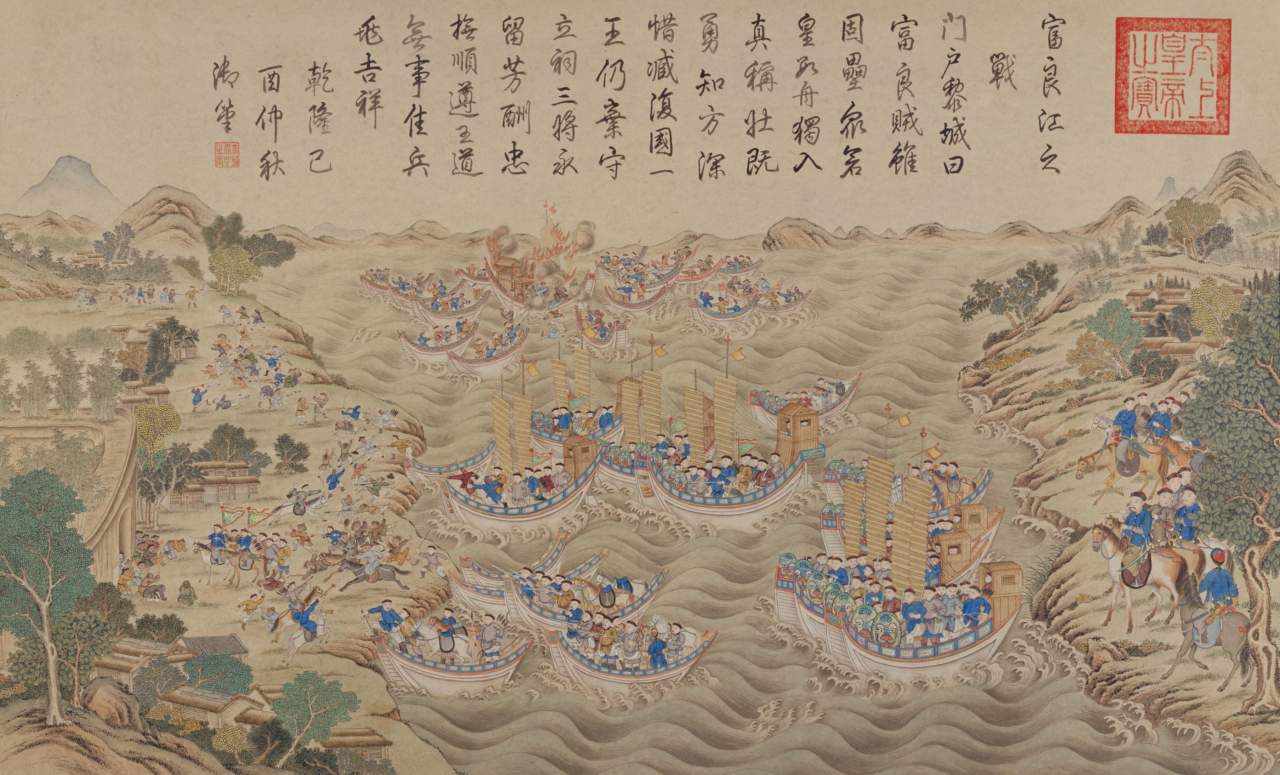 太上皇帝之寶
富良江之
戰
门户黎城曰
富良賊雖
固壘衆若
皇孤舟獨入
真稱壯既
勇知方深
惜臧復國一
王仍棄守
立祠三將永
留芳酬忠
撫順遵王道
無事佳兵
兆吉祥
乾隆己
酉仲秋
御筆